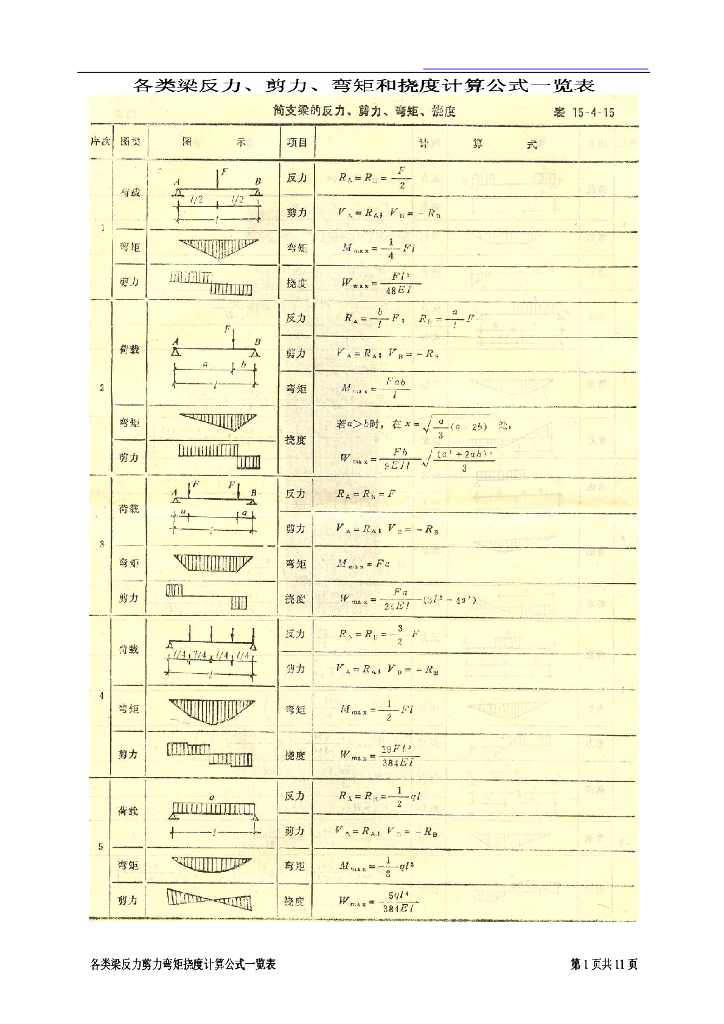 各类梁反力、剪力、弯矩和挠度计算公式一览表
简支梁的反力、剪力、弯矩、挠度 表 15-4-15
序次 图类 图 示 项目 计 算 式
1
荷载 A F B l/2 l/2 l
反力 R_A = R_B = F/2
剪力 V_A = R_A; V_B = -R_B
弯矩 弯矩 M_max = 1/4 Fl
剪力 挠度 W_max = Fl³/48EI
2
荷载 F A B a b l
反力 R_A = b/l F; R_B = a/l F
剪力 V_A = R_A; V_B = -R_B
弯矩 M_max = Fab/l
弯矩 挠度 若a>b时,在 x = √(a/3 (a+2b)) 处,
剪力 W_max = Fb/9EIl √((a²+2ab)³/3)
3
荷载 A F F B a a l
反力 R_A = R_B = F
剪力 V_A = R_A; V_B = -R_B
弯矩 弯矩 M_max = Fa
剪力 挠度 W_max = Fa/24EI (3l² - 4a²)
4
荷载 l/4 l/4 l/4 l/4 l
反力 R_A = R_B = 3/2 F
剪力 V_A = R_A; V_B = -R_B
弯矩 弯矩 M_max = 1/2 Fl
剪力 挠度 W_max = 19Fl³/384EI
5
荷载 l
反力 R_A = R_B = 1/2 ql
剪力 V_A = R_A; V_B = -R_B
弯矩 弯矩 M_max = 1/8 ql²
剪力 挠度 W_max = 5ql⁴/384EI
各类梁反力剪力弯矩挠度计算公式一览表 第 1 页共 11 页